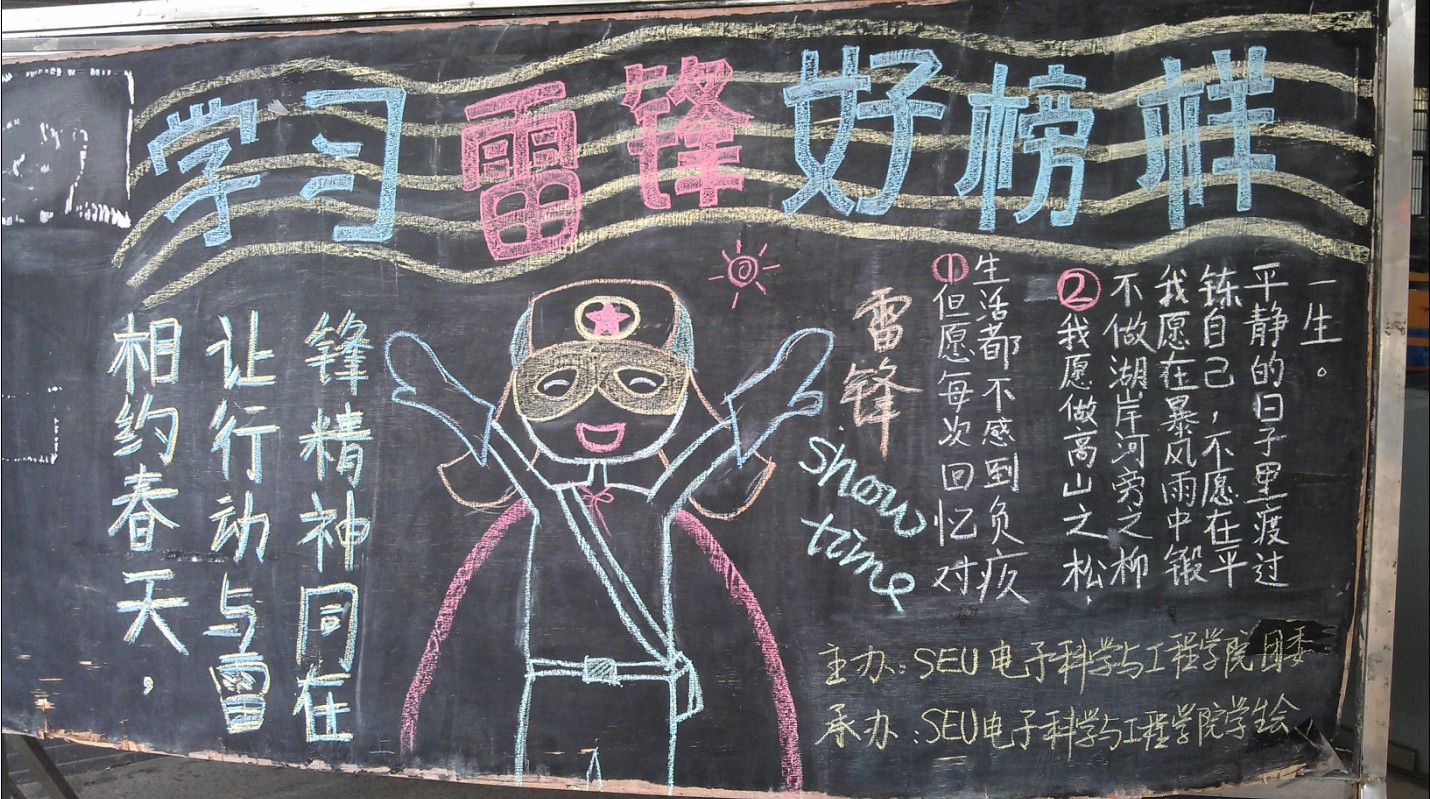 学习雷锋好榜样
相约春天，
让行动与雷
锋精神同在
雷锋
show
time
①但愿每次回忆对
生活都不感到负疚
②我愿做高山之松，
不做湖岸河旁之柳
我愿在暴风雨中锻
铄自己，不愿在平
平静的日子里度过
一生。
主办：SEU电子科学与工程学院团委
承办：SEU电子科学与工程学院学生会